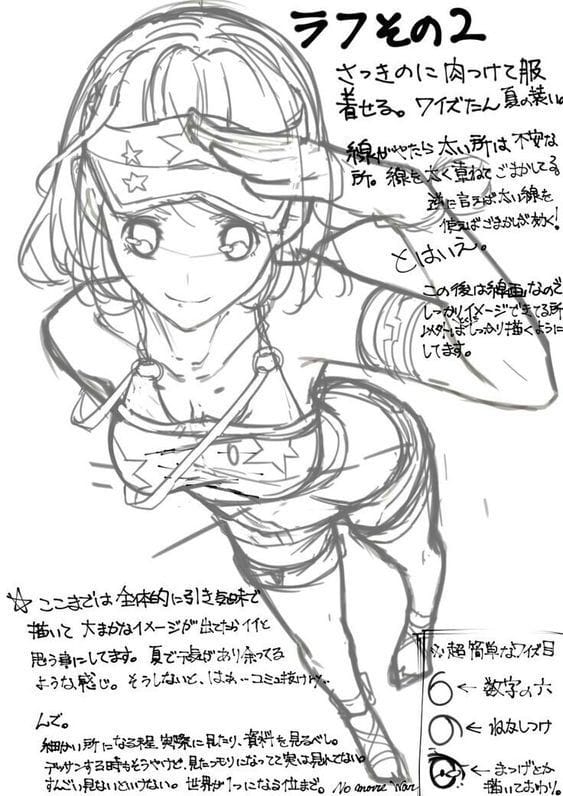 ラフその2
さっきのに肉つけて服
着せる。ワイズたん夏の装い。
線がやたら太い所は不安な
所。線を太く重ねてごまかしてる
逆に言えば太い線を
使えばごまかしが効く!
とはいえ。
この後は線画なので
しっかりイメージできてる所
以外はしっかり描くように
してます。
☆ ここまでは全体的に引き気味で
描いて 大まかなイメージが出てたらイイと
思う事にしてます。夏で元気があり余ってる
ような感じ。そうしないと、はぁ…コミュ抜けが…
んで。
細かい所になる程、実際に見たり、資料を見るべし。
デッサンする時もそうやけど、見たつもりになってて実は見れてない。
すんごい見ないといけない。世界が1つになる位まで。
No more War
※超簡単なワイズ目
6 ← 数字の六
← ねなしつけ
← まつげとか
描いておわり。